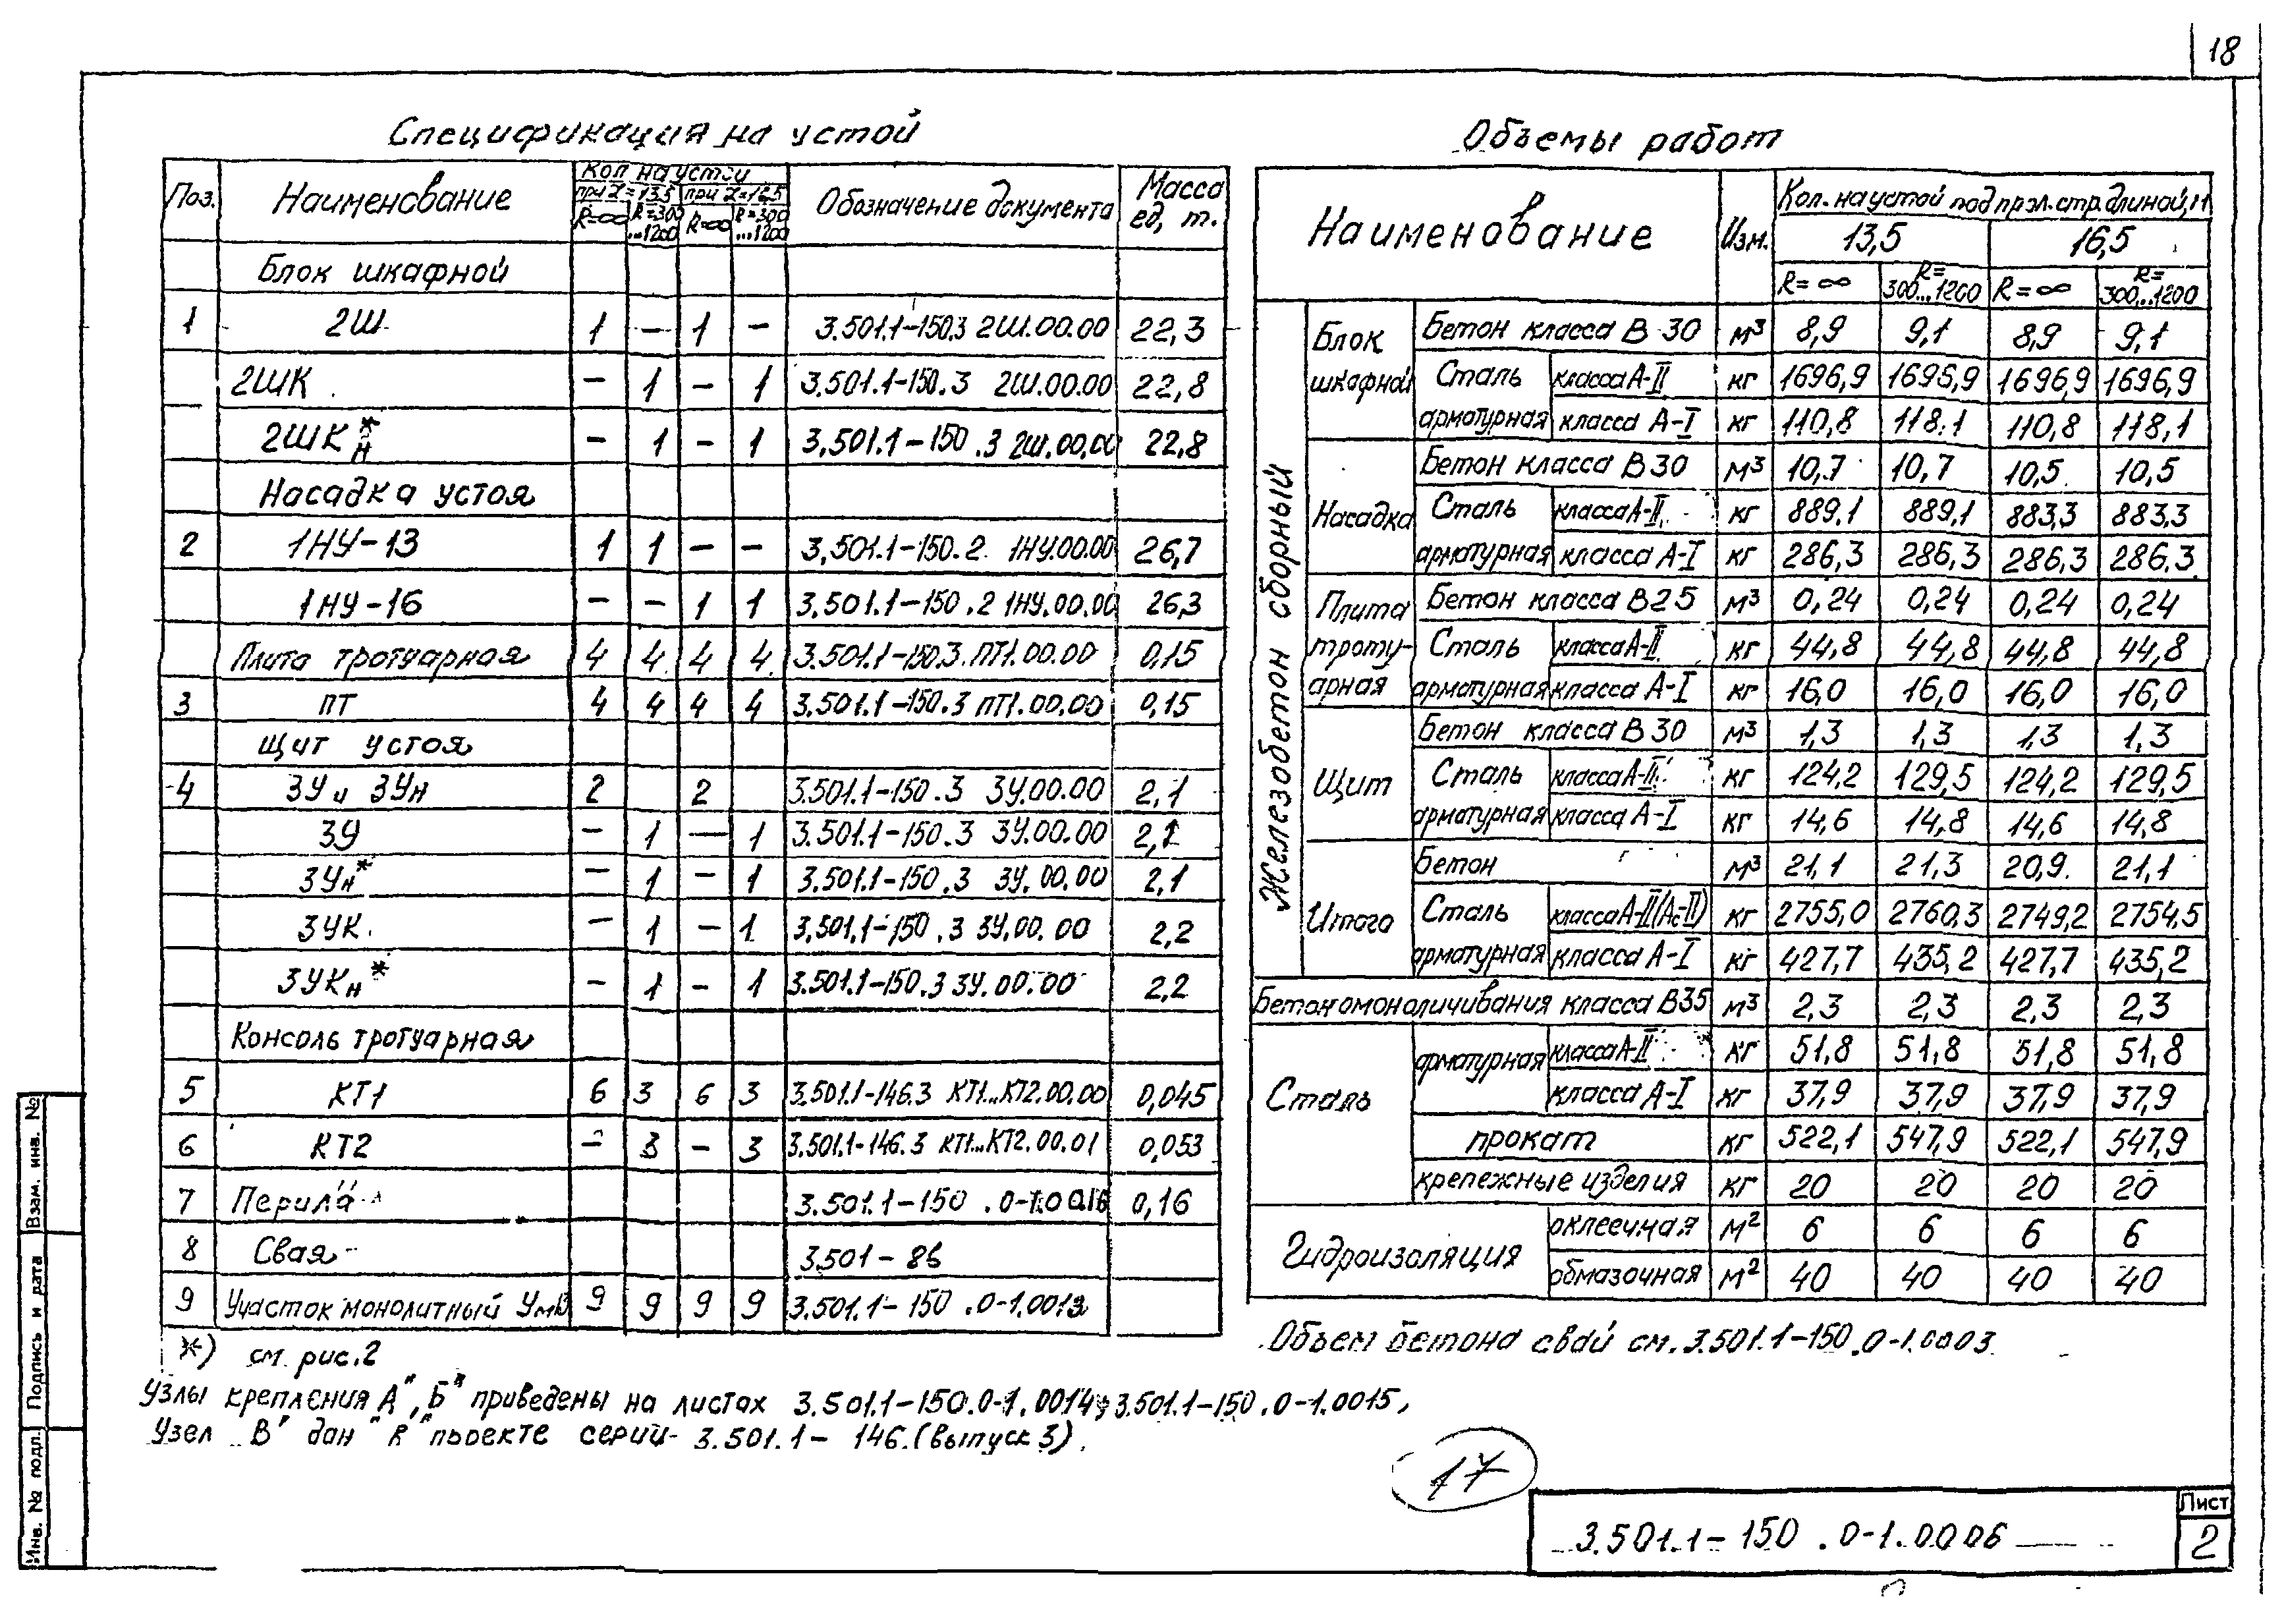 18
Спецификация на устой
Поз. Наименование Кол на устой Обозначение документа Масса ед, т.
при L=13,5 при L=16,5
R=∞ R=300...1200 R=∞ R=300...1200
Блок шкафной
1 2Ш 1 – 1 – 3.501.1-150.3 2Ш.00.00 22,3
2ШК – 1 – 1 3.501.1-150.3 2Ш.00.00 22,8
2ШКн* – 1 – 1 3.501.1-150.3 2Ш.00.00 22,8
Насадка устоя
2 1НУ-13 1 1 – – 3.501.1-150.2 1НУ.00.00 26,7
1НУ-16 – – 1 1 3.501.1-150.2 1НУ.00.00 26,3
Плита тротуарная 4 4 4 4 3.501.1-150.3.ПТ1.00.00 0,15
3 ПТ 4 4 4 4 3.501.1-150.3 ПТ1.00.00 0,15
Щит устоя
4 3У и 3Ун 2 2 3.501.1-150.3 3У.00.00 2,1
3У – 1 – 1 3.501.1-150.3 3У.00.00 2,1
3Ун* – 1 – 1 3.501.1-150.3 3У.00.00 2,1
3УК – 1 – 1 3.501.1-150.3 3У.00.00 2,2
3УКн* – 1 – 1 3.501.1-150.3 3У.00.00 2,2
Консоль тротуарная
5 КТ1 6 3 6 3 3.501.1-146.3 КТ1...КТ2.00.00 0,045
6 КТ2 – 3 – 3 3.501.1-146.3 КТ1...КТ2.00.01 0,053
7 Перила 3.501.1-150.0-1.0016 0,16
8 Свая 3.501-86
9 Участок монолитный 9 9 9 9 3.501.1-150.0-1.0013
*) см. рис.2
Узлы крепления „А", „Б" приведены на листах 3.501.1-150.0-1.0014; 3.501.1-150.0-1.0015,
Узел „В" дан в проекте серии 3.501.1-146.(выпуск 3).
Объемы работ
Наименование Изм. Кол. на устой под прол. стр. длиной, м
13,5 16,5
R=∞ R=300...1200 R=∞ R=300...1200
Железобетон сборный
Блок шкафной Бетон класса В 30 м³ 8,9 9,1 8,9 9,1
Сталь арматурная класса А-II кг 1696,9 1696,9 1696,9 1696,9
класса А-I кг 110,8 118,1 110,8 118,1
Насадка Бетон класса В30 м³ 10,7 10,7 10,5 10,5
Сталь арматурная класса А-II кг 889,1 889,1 883,3 883,3
класса А-I кг 286,3 286,3 286,3 286,3
Плита тротуарная Бетон класса В25 м³ 0,24 0,24 0,24 0,24
Сталь арматурная класса А-II кг 44,8 44,8 44,8 44,8
класса А-I кг 16,0 16,0 16,0 16,0
Щит Бетон класса В30 м³ 1,3 1,3 1,3 1,3
Сталь арматурная класса А-II кг 124,2 129,5 124,2 129,5
класса А-I кг 14,6 14,8 14,6 14,8
Итого Бетон м³ 21,1 21,3 20,9 21,1
Сталь арматурная класса А-II(Ас-II) кг 2755,0 2760,3 2749,2 2754,5
класса А-I кг 427,7 435,2 427,7 435,2
Бетон омоноличивания класса В35 м³ 2,3 2,3 2,3 2,3
Сталь арматурная класса А-II кг 51,8 51,8 51,8 51,8
класса А-I кг 37,9 37,9 37,9 37,9
прокат кг 522,1 547,9 522,1 547,9
крепежные изделия кг 20 20 20 20
Гидроизоляция оклеечная м² 6 6 6 6
обмазочная м² 40 40 40 40
Объем бетона свай см. 3.501.1-150.0-1.0003
17
3.501.1-150.0-1.0006
Лист
2
Взам. инв. №
Подпись и дата
Инв. № подл.